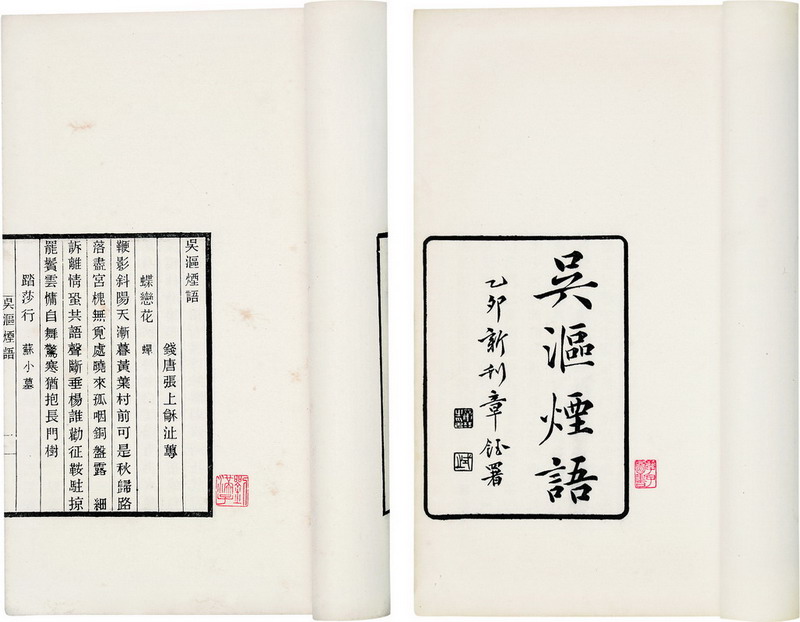 吳漚煙語
乙卯新刊章鈺署
吳漚煙語
錢唐張上龢沚蓴
蝶戀花 蟬
鞭影斜陽天漸暮黃葉村前可是秋歸路
落盡宮槐無覓處曉來孤咽銅盤露 細
訴離情蛩共語聲斷垂楊誰勸征鞍駐掠
罷鬢雲慵自舞驚寒猶抱長門樹
踏莎行 蘇小墓
吳漚煙語 一